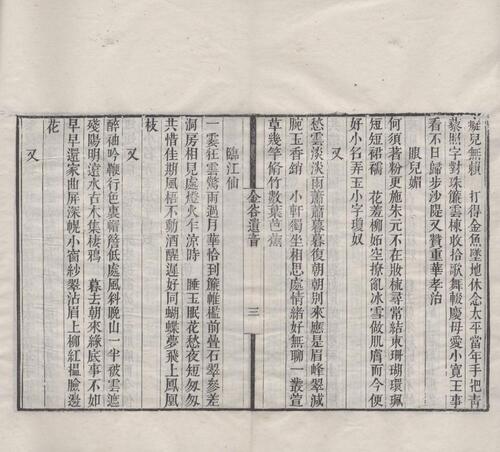 癡兒無賴　打得金魚墜地休念太平當年手把青
藜照字對珠簾雲棟收拾歌舞輟慶母愛小寬王事
看不日歸步沙隄又贊重華孝治
眼兒媚
何須著粉更施朱元不在妝梳尋常結束珊瑚環珮
短短裙襦　花羞柳妬空撩亂冰雪做肌膚而今便
好小名弄玉小字瓊奴
又
愁雲淡淡雨蕭蕭暮暮復朝朝別來應是眉峰翠減
腕玉香銷　小軒獨坐相思處情緒好無聊一叢萱
草幾竿脩竹數葉芭蕉
金谷遺音
三
臨江仙
一霎狂雲驚雨過月華恰到簾帷檻前疊石翠參差
洞房相見處燈火乍涼時　睡玉眠花愁夜短匆匆
共惜佳期風梧不動酒醒遲好同蝴蝶夢飛上鳳凰
枝
又
醉袖吟鞭行色裏帽簷低處風斜晚山一半被雲遮
殘陽明遠水古木集棲鴉　暮去朝來緣底事不如
早早還家曲屏深幌小窗紗翠沾眉上柳紅搵臉邊
花
又